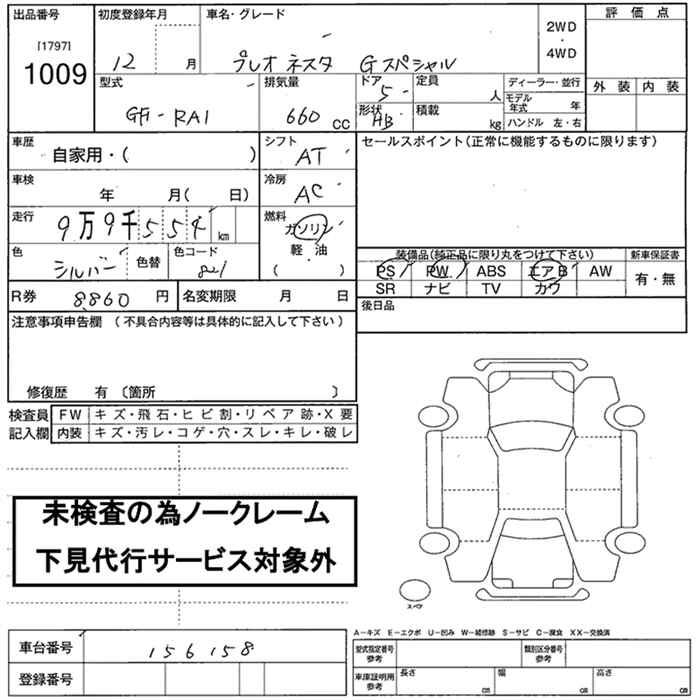 出品番号 初度登録年月 車名・グレード 2WD・4WD 評価点
[1797]
1009
12 月 プレオ ネスタ Gスペシャル
型式 排気量 ドア 5 定員 人 ディーラー・並行 外装 内装
モデル年式 年
GF-RA1 660 CC 形状 HB 積載 kg ハンドル 左・右
車歴 自家用・( ) シフト AT セールスポイント(正常に機能するものに限ります)
車検 年 月( 日) 冷房 AC
走行 9万9千554 km 燃料 ガソリン
軽・油
( )
色 シルバー 色替 色コード 821
装備品(純正品に限り丸をつけて下さい) 新車保証書
PS PW ABS エアB AW 有・無
SR ナビ TV カワ
R券 8,860 円 名変期限 月 日 後日品
注意事項申告欄 (不具合内容等は具体的に記入して下さい)
修復歴 有 〔箇所 〕
検査員 FW キズ・飛石・ヒビ割・リペア跡・X要
記入欄 内装 キズ・汚レ・コゲ・穴・スレ・キレ・破レ
未検査の為ノークレーム
下見代行サービス対象外
スペア
A−キズ E−エクボ U−凹み W−補修跡 S−サビ C−腐食 XX−交換済
車台番号 156158 型式指定番号 参考 類別区分番号 参考
登録番号 車庫証明用 参考 長さ cm 幅 cm 高さ cm